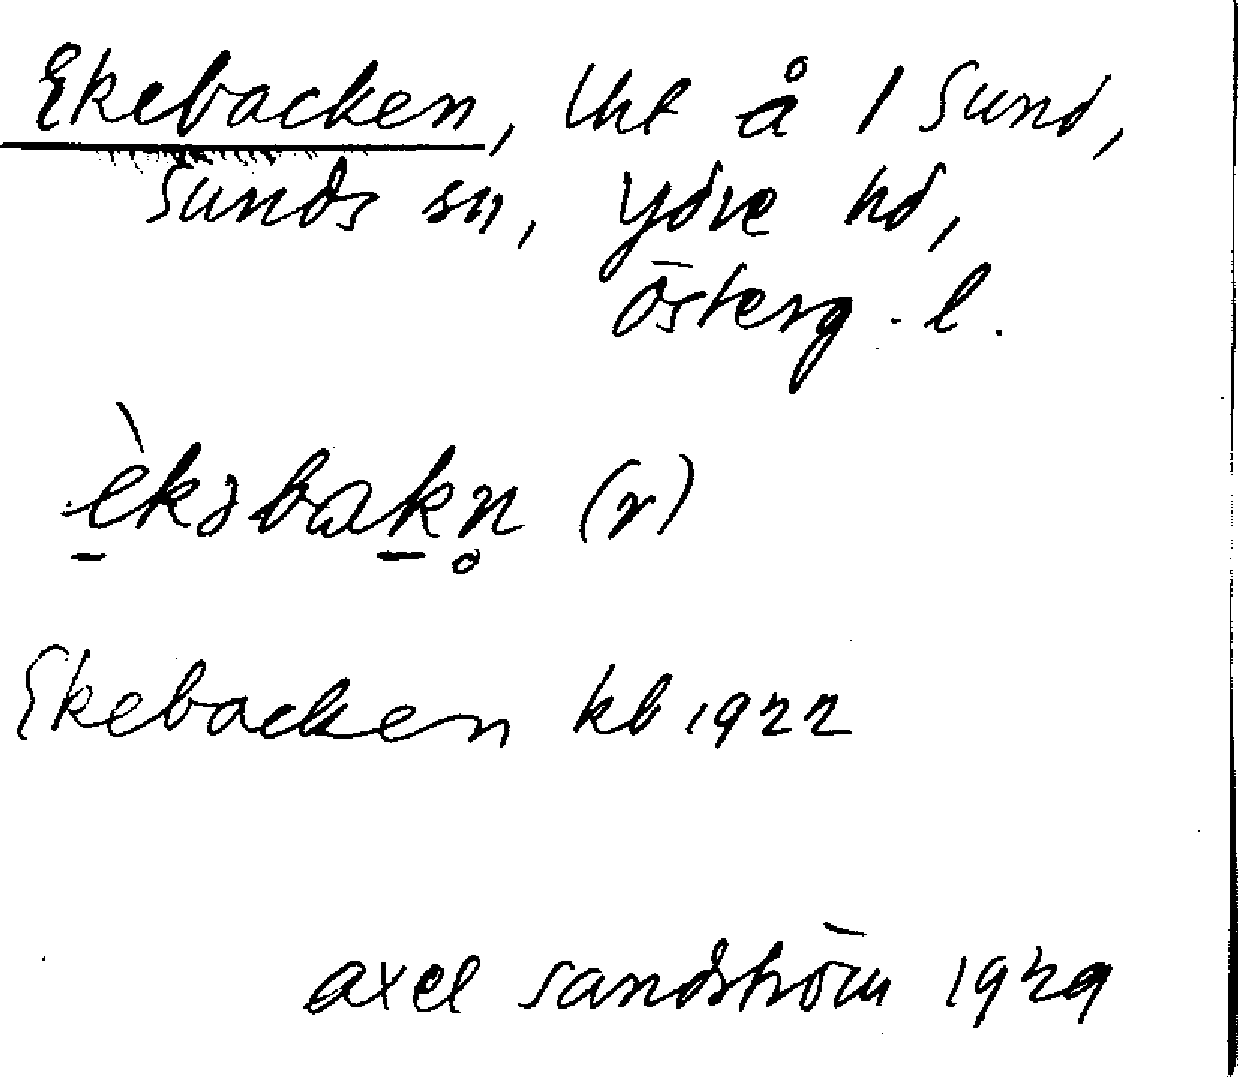 Ekebacken, lht å 1 Sund,
Sunds sn, Ydre hd,
Österg. l.
èkəbakn̥ (r)
Ekebacken kb 1922
Axel Sandström 1929